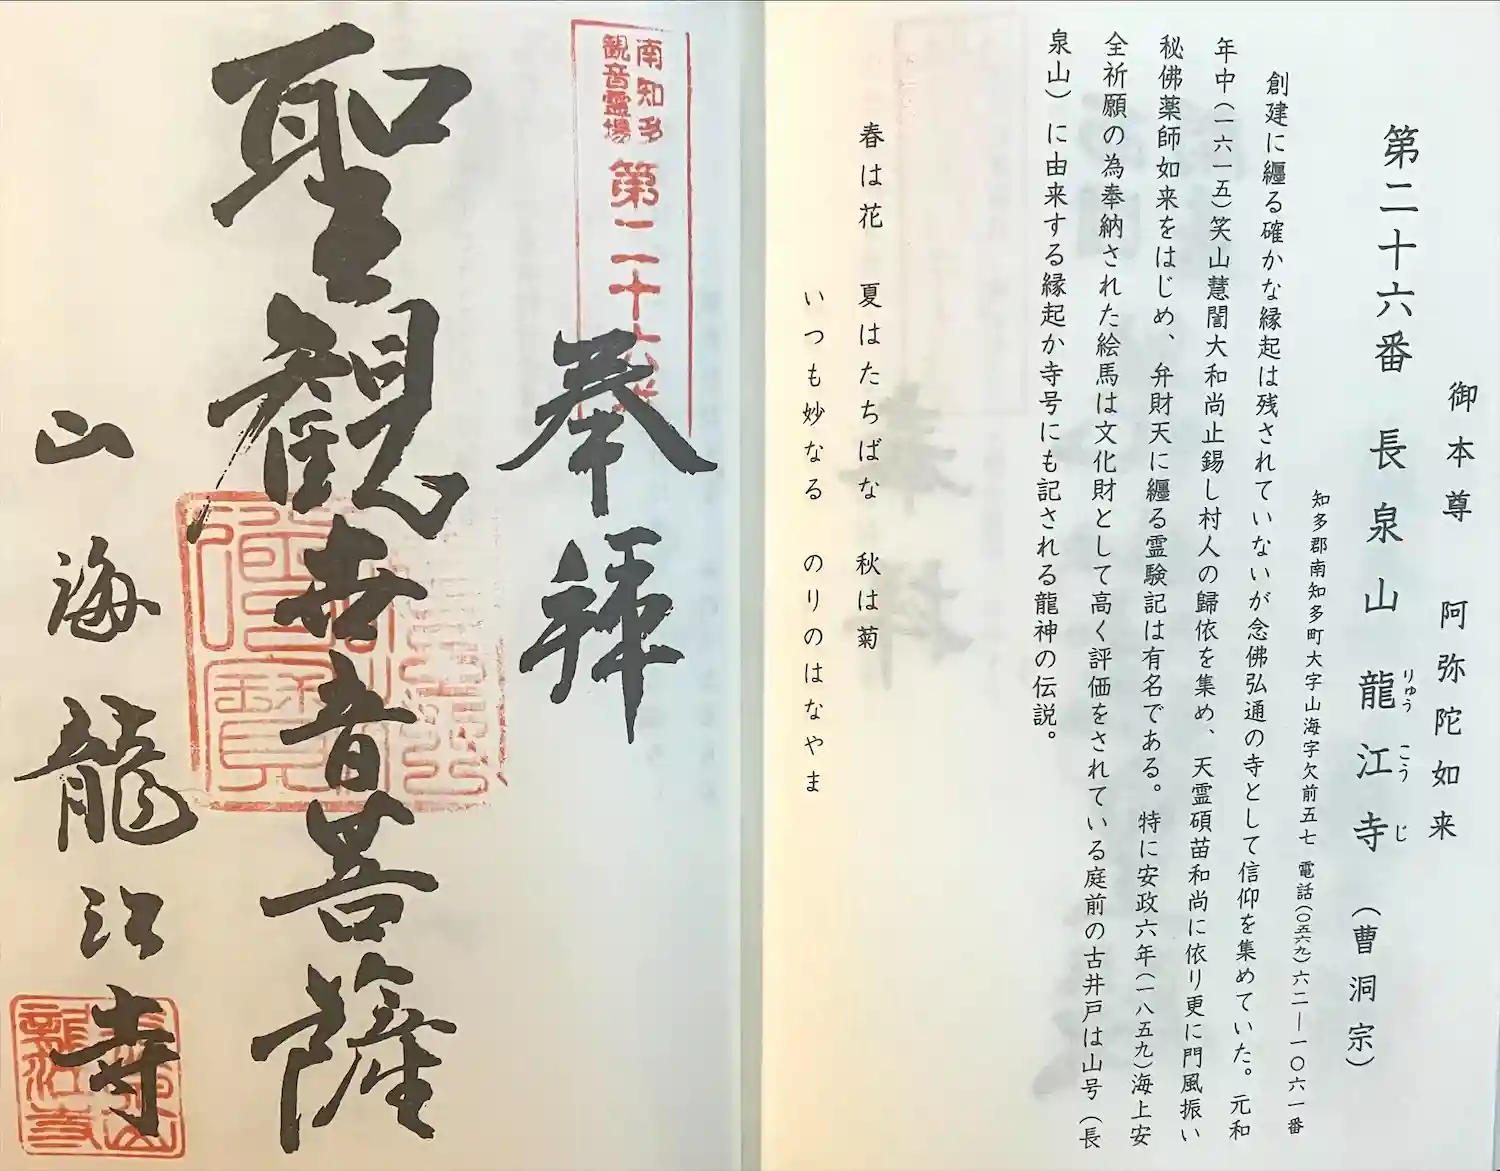 御本尊 阿弥陀如来
第二十六番 長泉山 龍江寺（曹洞宗）
りゅう こう じ
知多郡南知多町大字山海字欠前五七 電話(〇五六九)六二―一〇六一番
創建に纒る確かな縁起は残されていないが念佛弘通の寺として信仰を集めていた。元和
年中(一六一五)笑山慧誾大和尚止錫し村人の歸依を集め、天霊碩苗和尚に依り更に門風振い
秘佛薬師如来をはじめ、弁財天に纒る霊験記は有名である。特に安政六年(一八五九)海上安
全祈願の為奉納された絵馬は文化財として高く評価をされている庭前の古井戸は山号（長
泉山）に由来する縁起か寺号にも記される龍神の伝説。
春は花 夏はたちばな 秋は菊
いつも妙なる のりのはなやま
南知多
観音霊場
第二十六番
奉拝
聖観世音菩薩
山海龍江寺